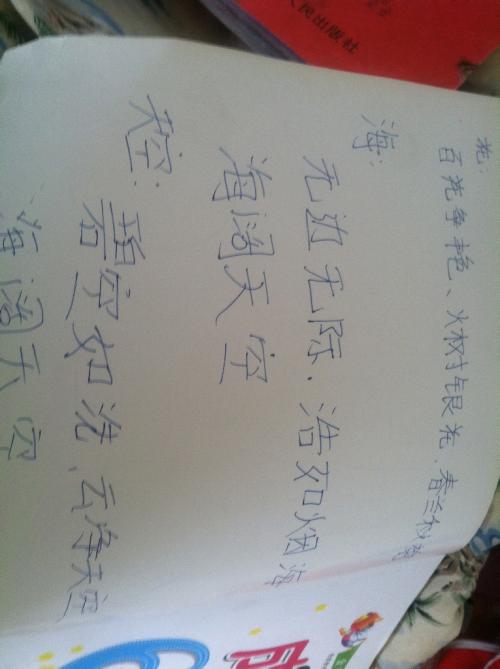 人民出版社
花:
百花争艳、火树银花、春兰秋菊
海:
无边无际.浩如烟海
海阔天空
天空:
碧空如洗、云净天空
海阔天空